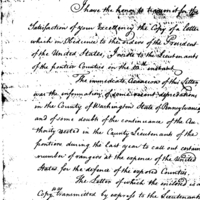 I have the honor to transmit for the
Satisfaction of your Excellency the Copy of a Letter
which in Obedience to the orders of the President
of the United States, I wrote to the Lieutenants
of the frontier Counties on the 10th instant.
The immediate Occasion of this Letter
was the information, of some recent depredations
in the County of Washington State of Pennsylvania,
and of some doubts of the continuance of the Au-
thority vested in the County Lieutenants of the
frontiers during the last year to call out certain
number of rangers at the expense of the United
States for the defence of the exposed Counties.
The Letter of which the enclosed is a
Copy was transmitted by express to the Lieutenants